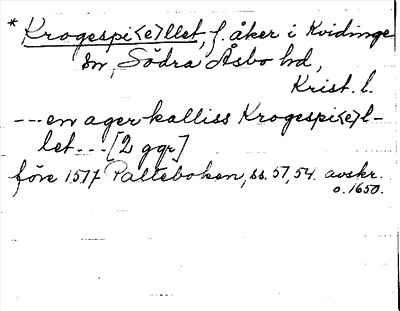 * Krogespi<e>llet, f. åker i Kvidinge
sn, Södra Åsbo hd,
Krist. l.
--- en ager kalliss Krogespi<e>l-
let --- [2 ggr]
före 1577 Palteboken, ss. 57, 54. avskr.
o. 1650.